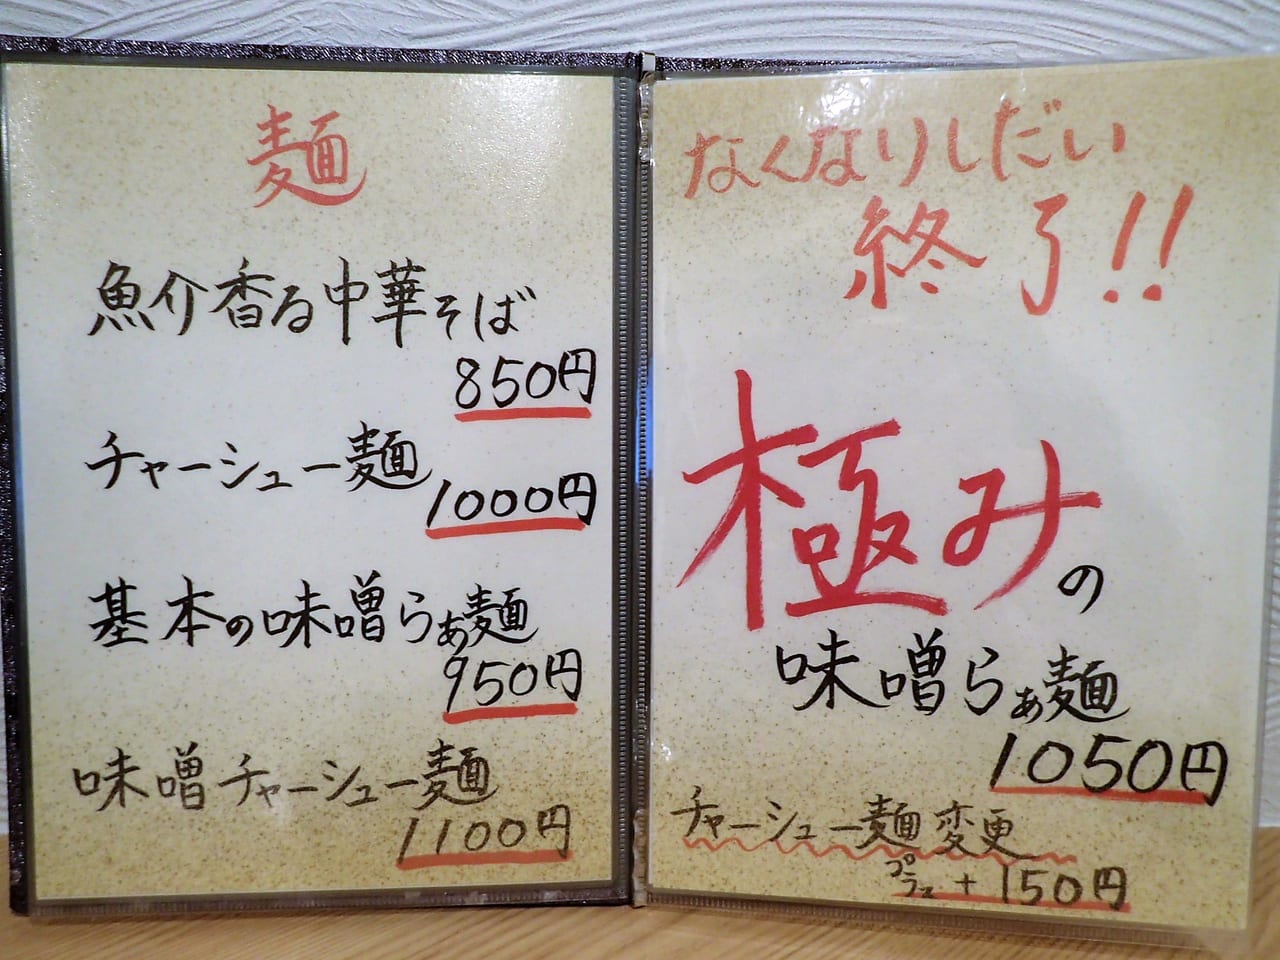 麺
魚介香る中華そば
850円
チャーシュー麺
1000円
基本の味噌らぁ麺
950円
味噌チャーシュー麺
1100円
なくなりしだい
終了!!
極みの
味噌らぁ麺
1050円
チャーシュー麺変更
プラス+150円